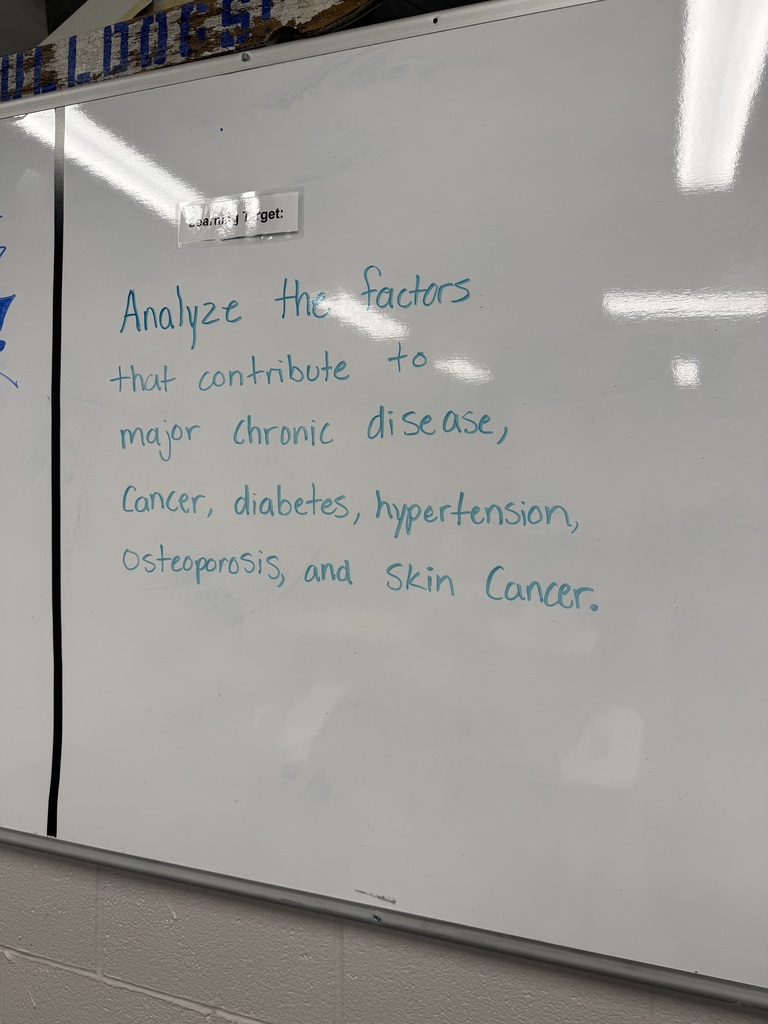 BULLDOGS
Learning Target:
Analyze the factors
that contribute to
major chronic disease,
Cancer, diabetes, hypertension,
Osteoporosis, and Skin Cancer.